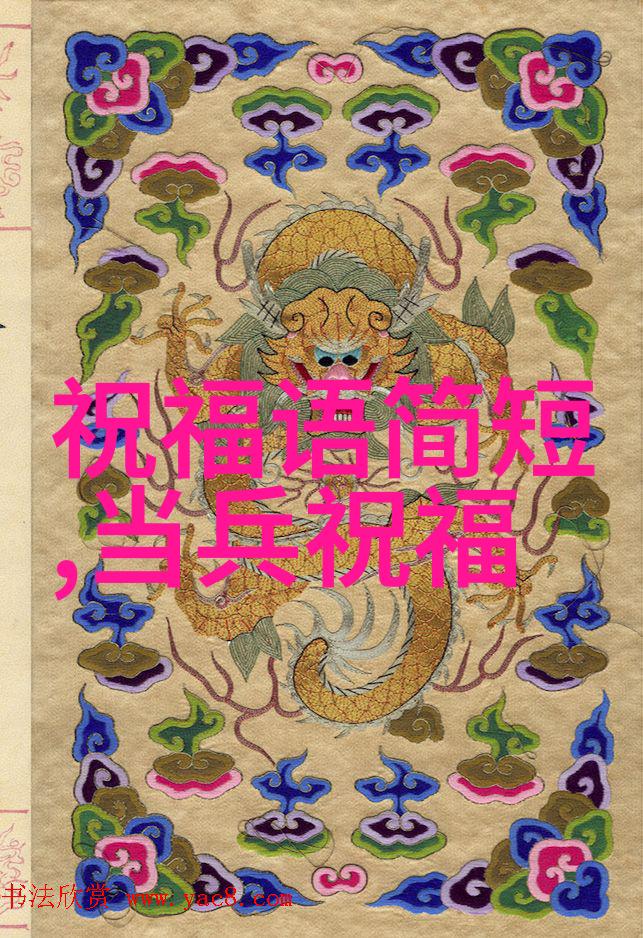 祝福语简短
,当兵祝福
书法欣赏 www.yac8.com